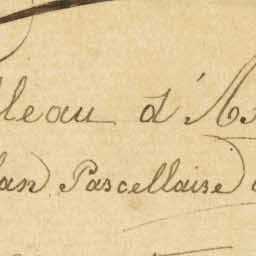 leau d'A
lan Pascellaise